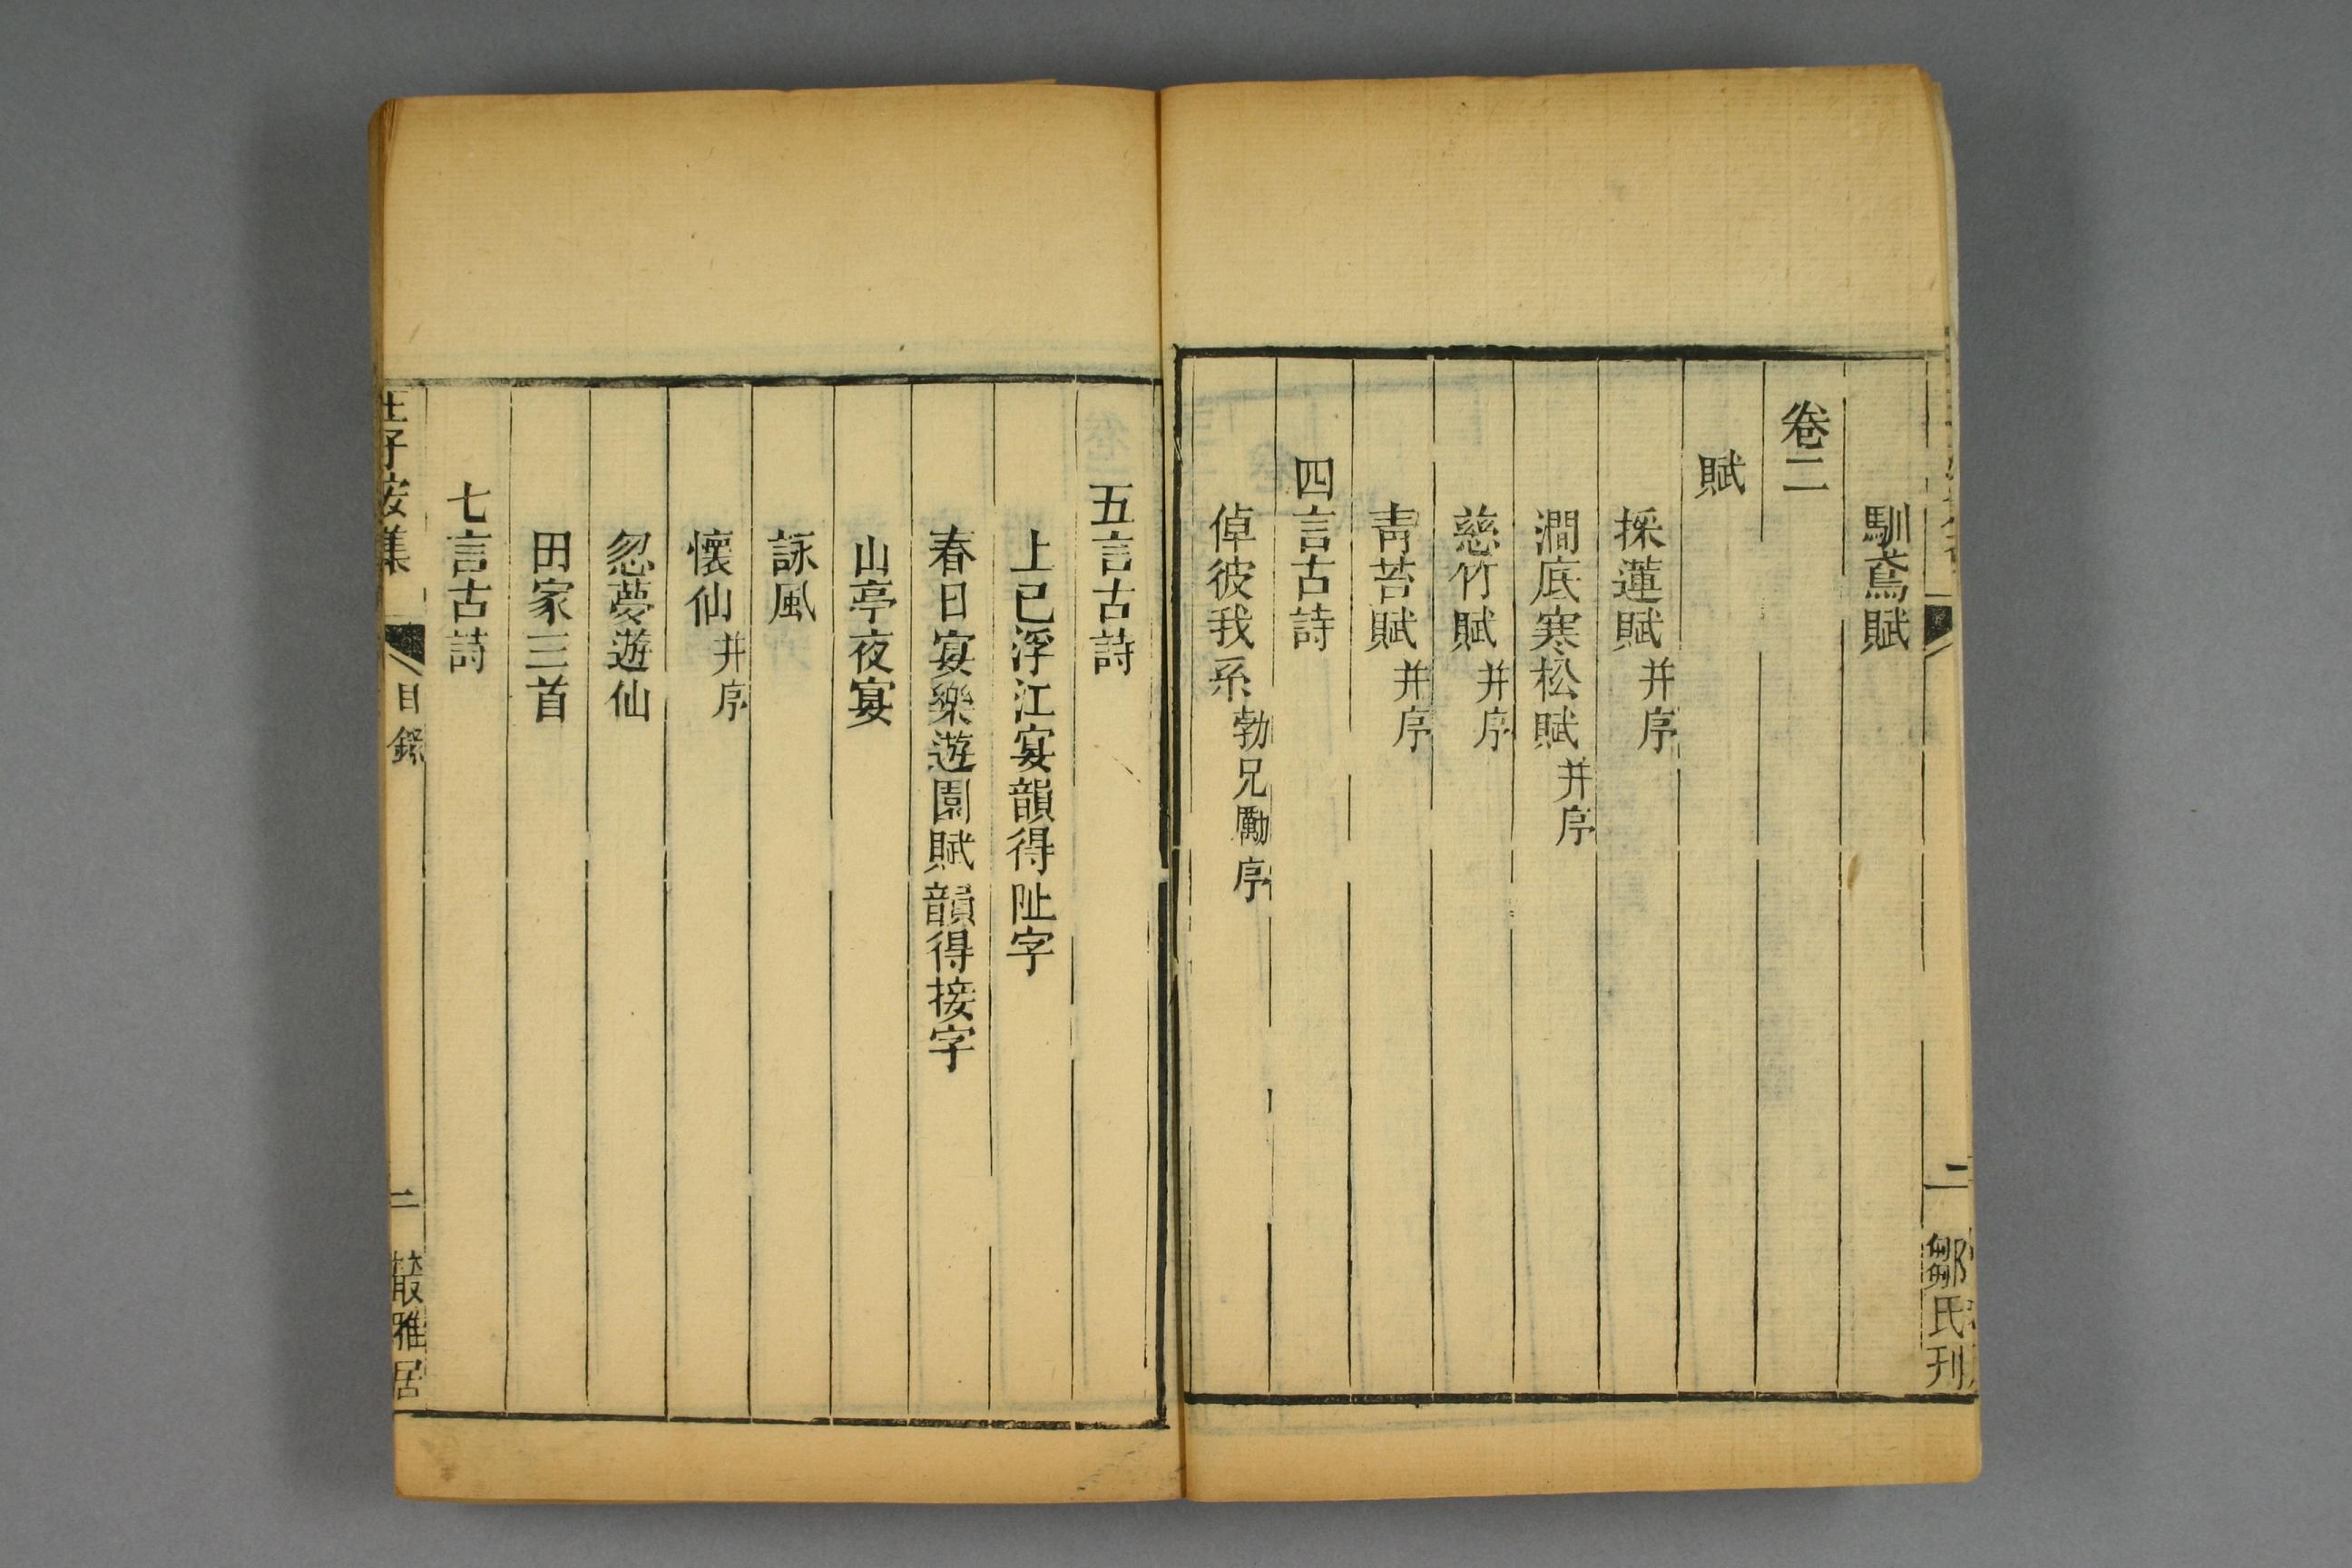 馴鳶賦
卷二
賦
採蓮賦并序
澗底寒松賦并序
慈竹賦并序
靑苔賦并序
四言古詩
倬彼我系勃兄勵序
二
鄒氏刋
五言古詩
上巳浮江宴韻得阯字
春日宴樂遊園賦韻得接字
山亭夜宴
詠風
懷仙并序
忽夢遊仙
田家三首
七言古詩
王子安集
目錄
二
叢雅居